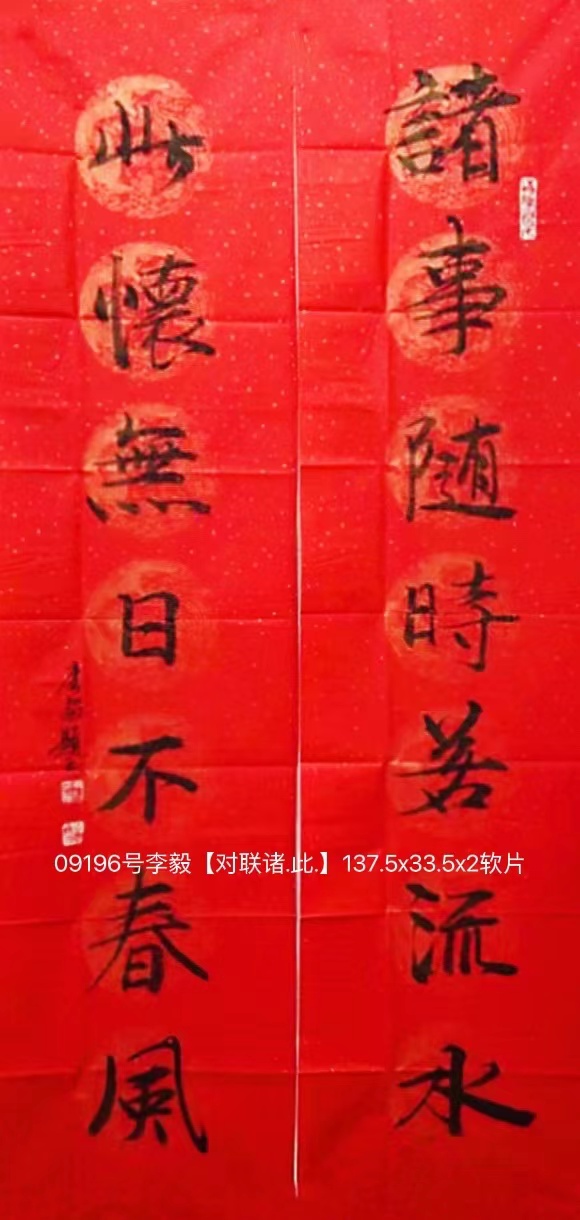 諸事隨時若流水
此懷無日不春風
09196号李毅【对联诸.此.】137.5x33.5x2软片